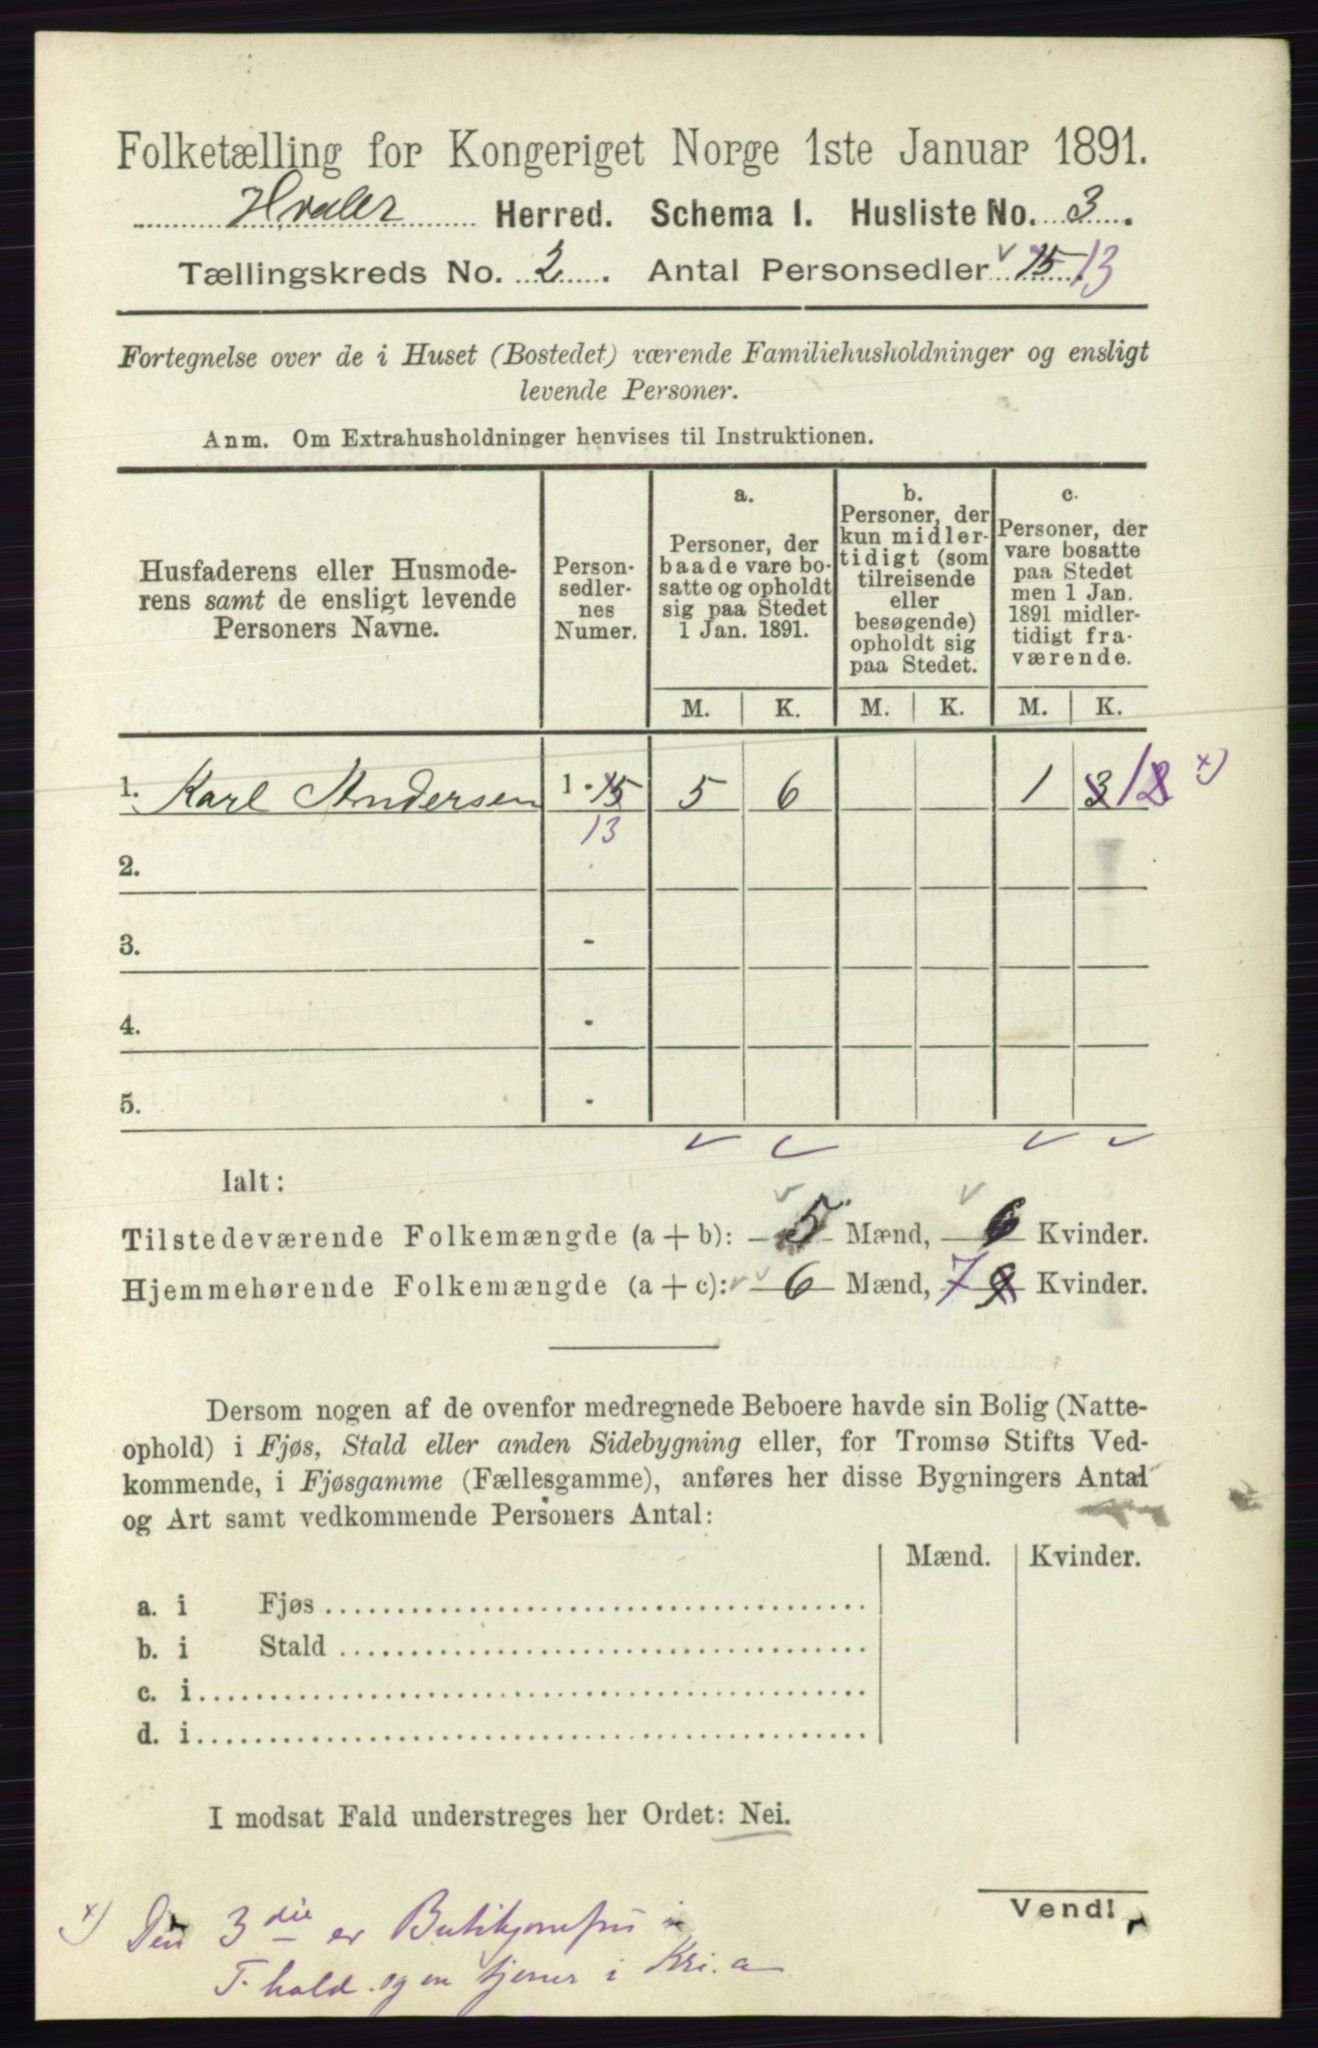 Folketælling for Kongeriget Norge 1ste Januar 1891.
Hvaler Herred. Schema 1. Husliste No. 3.
Tællingskreds No. 2. Antal Personsedler 15 13
Fortegnelse over de i Huset (Bostedet) værende Familiehusholdninger og ensligt
levende Personer.
Anm. Om Extrahusholdninger henvises til Instruktionen.
Husfaderens eller Husmode-
rens samt de ensligt levende
Personers Navne.
Person-
sedler-
nes
Numer.
a.
Personer, der
baade vare bo-
satte og opholdt
sig paa Stedet
1 Jan. 1891.
b.
Personer, der
kun midler-
tidigt (som
tilreisende
eller
besøgende)
opholdt sig
paa Stedet.
c.
Personer, der
vare bosatte
paa Stedet
men 1 Jan.
1891 midler-
tidigt fra-
værende.
M. K. M. K. M. K.
1. Karl Andersen 1 - 15 5 6 1 3 1 2 x)
13
2.
3. -
4. -
5. -
Ialt:
Tilstedeværende Folkemængde (a + b): 5 Mænd, 6 Kvinder.
Hjemmehørende Folkemængde (a + c): 6 Mænd, 7 9 Kvinder.
Dersom nogen af de ovenfor medregnede Beboere havde sin Bolig (Natte-
ophold) i Fjøs, Stald eller anden Sidebygning eller, for Tromsø Stifts Ved-
kommende, i Fjøsgamme (Fællesgamme), anføres her disse Bygningers Antal
og Art samt vedkommende Personers Antal:
Mænd. Kvinder.
a. i Fjøs
b. i Stald
c. i
d. i
I modsat Fald understreges her Ordet: Nei.
Vend!
x) Den 3 die er i
T. hald. og en tjener i Kri.a